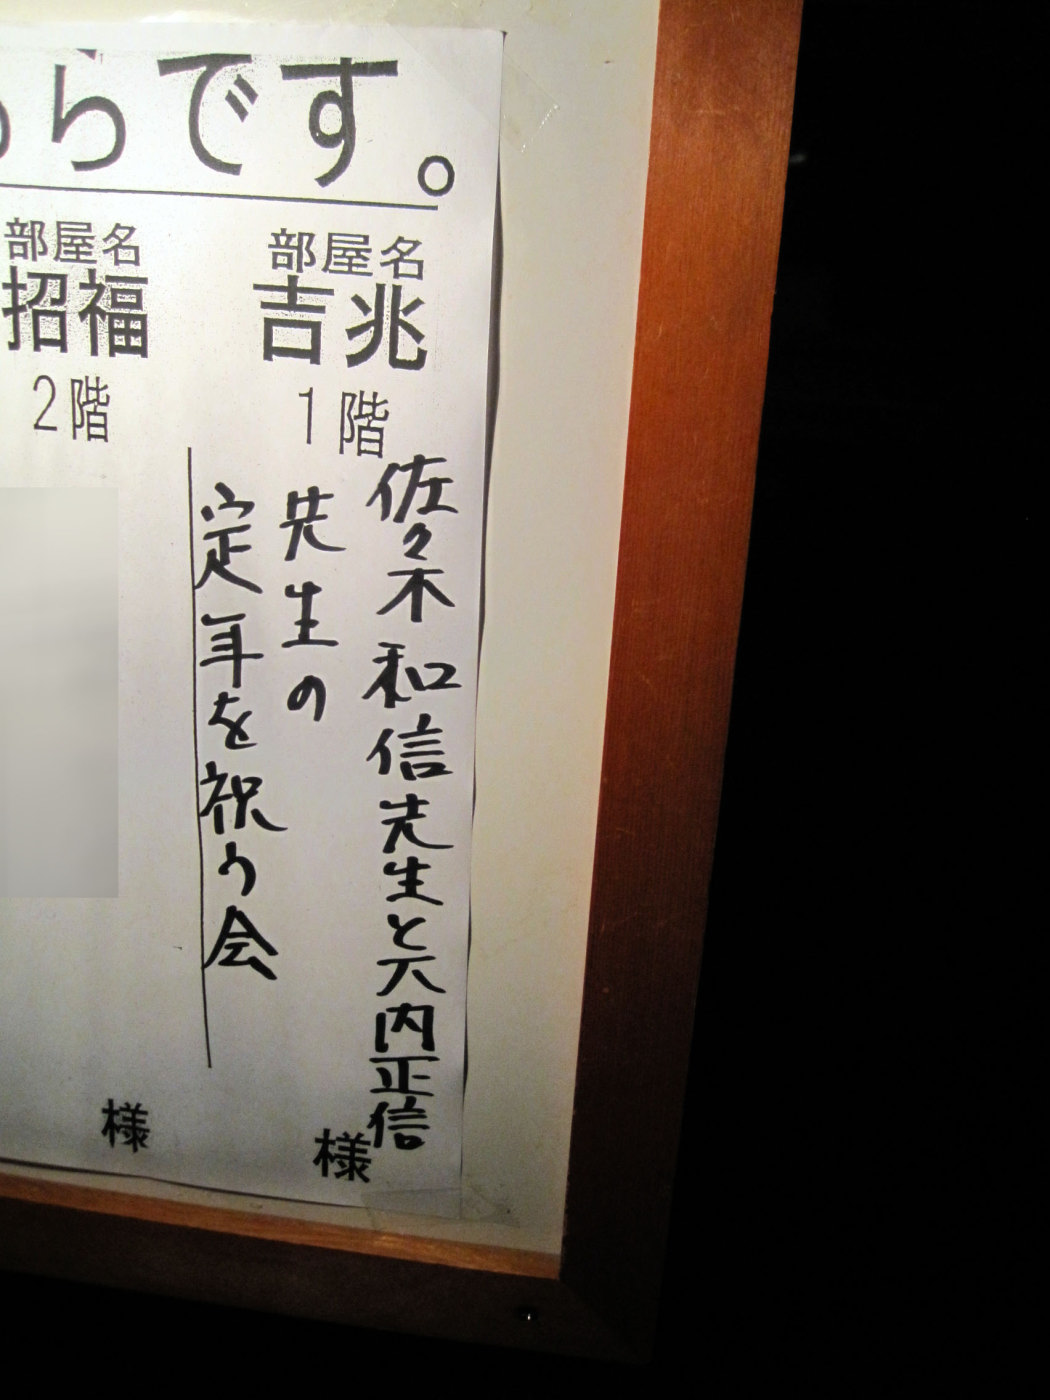 ちらです。
部屋名
吉兆
1階
佐々木和信先生と六内正信
先生の
定年を祝う会
様
部屋名
招福
2階
様